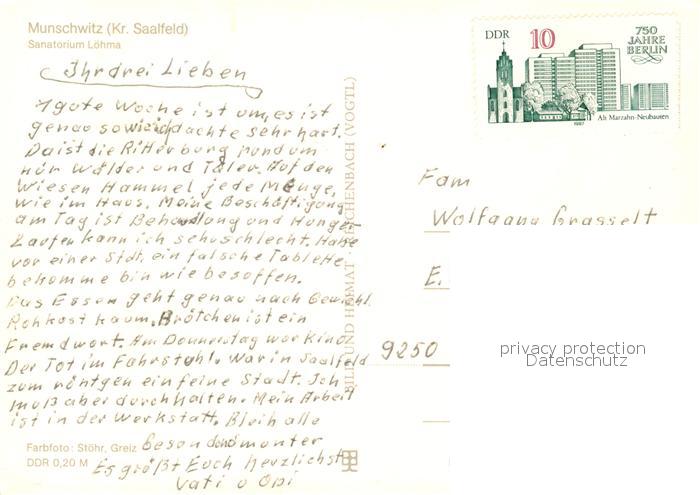 Munschwitz (Kr. Saalfeld)
Sanatorium Löhma
Ihr drei Lieben
1 gute Woche ist um, es ist
genau so wie ich dachte sehr hart.
Da ist die Ritterburg rundum
nur Wälder und Täler. Auf den
Wiesen Hammel jede Menge,
wie im Haus. Meine Beschäftigung
am Tag ist Behandlung und Hunger
Laufen kann ich sehr schlecht. Habe
vor einer Stdt. ein falsche Tablette
bekomme bin wie besoffen.
Das Essen geht genau nach Gewicht.
Rohkost kaum. Brötchen ist ein
Fremdwort. Am Donnerstag war Kino
Der Tot im Fahrstuhl. War in Saalfeld
zum röntgen ein feine Stadt. Ich
muß aber durchhalten. Mein Arbeit
ist in der Werkstatt. Bleib alle
besonders munter
Es grüßt Euch herzlichst
Vati u Opi
Farbfoto: Stöhr, Greiz
DDR 0,20 M
BILD UND HEIMAT · REICHENBACH (VOGTL)
DDR 10
750
JAHRE
BERLIN
Alt Marzahn-Neubauten
1987
Fam
Wolfgang Grasselt
E.
9250
privacy protection
Datenschutz